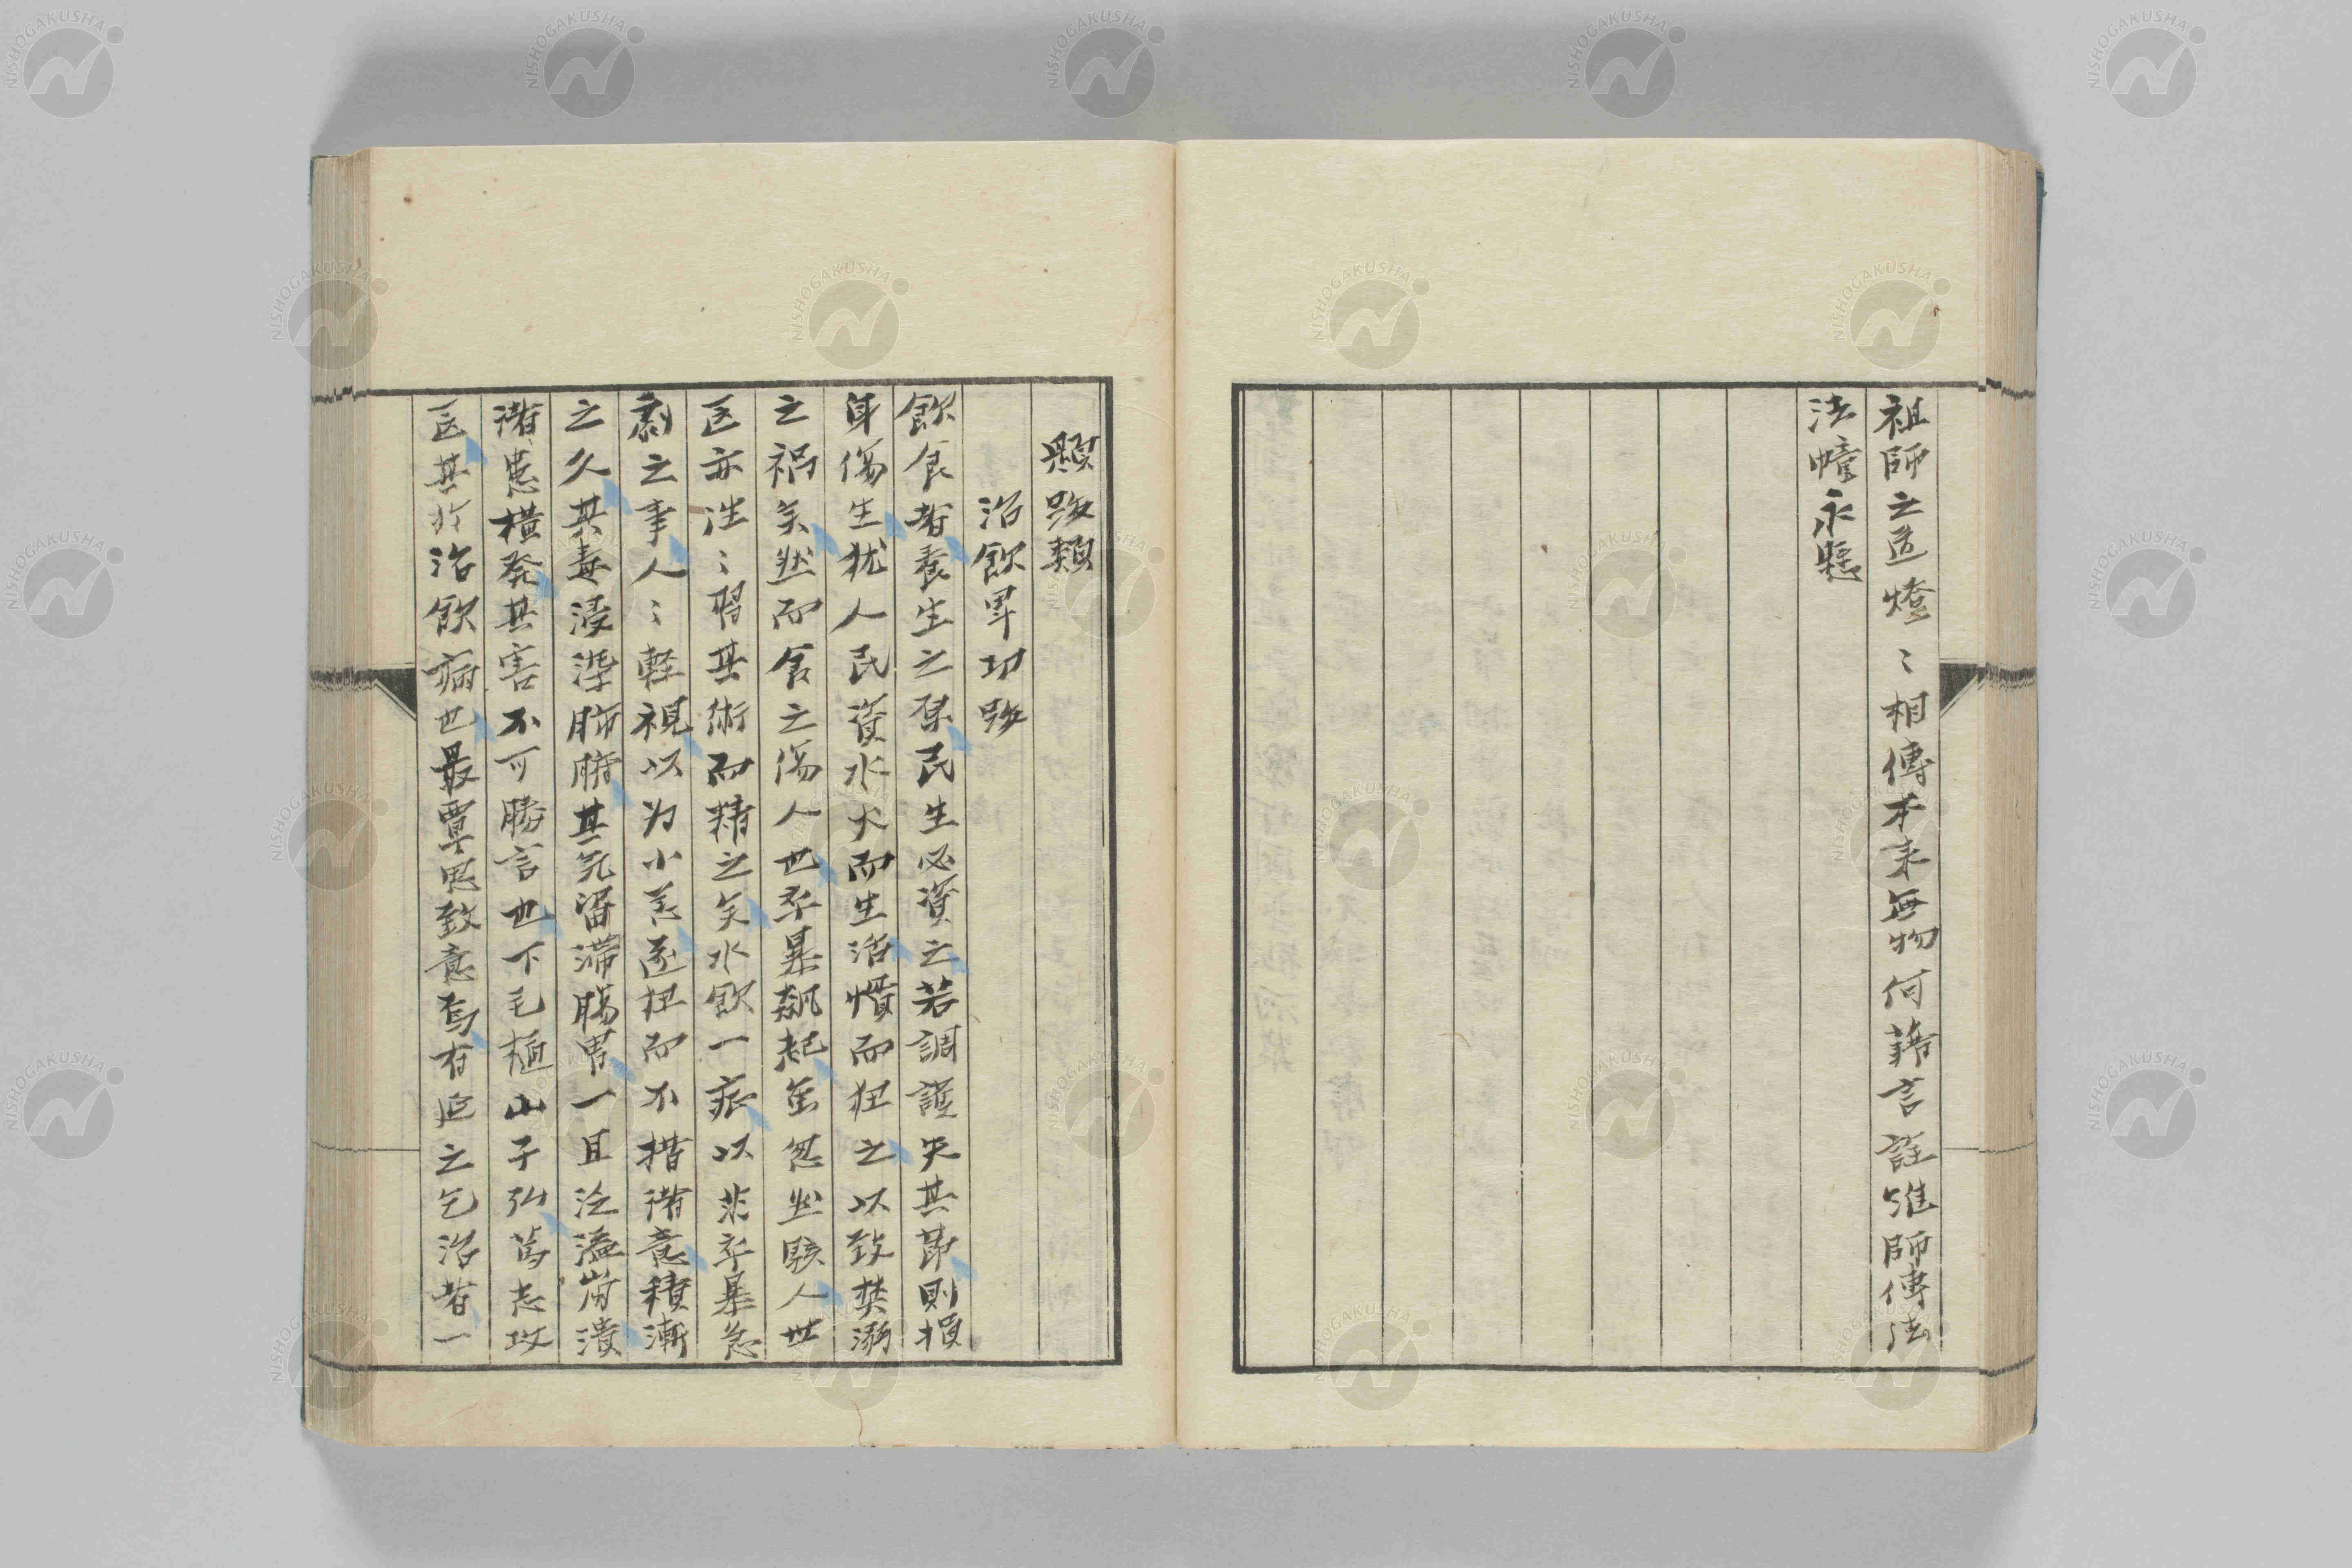 祖師之道燈〻相傳本來無物何藉言詮唯師傳法
法幢永懸
題跋類
治飲畢功跋
飲食者養生之原民生必資之若調護失其節則損
身傷生犹人民資水火而生活慣而狃之以致焚溺
之禍矣然而食之傷人也卒暴飙起至忽然駭人世
医亦泩〻習其術而精之矣水飲一症以非卒暴急
劇之事人〻軽視以为小恙遂狃而不措諸意積漸
之久其毒浸淫肺膈其氣留滞腸胃一旦泛溢崩潰
諸患橫発其害不可勝言也下毛植山子弘篤志攻
医其於治飲病也最覃思致意焉有延之乞治者一
NISHOGAKUSHA